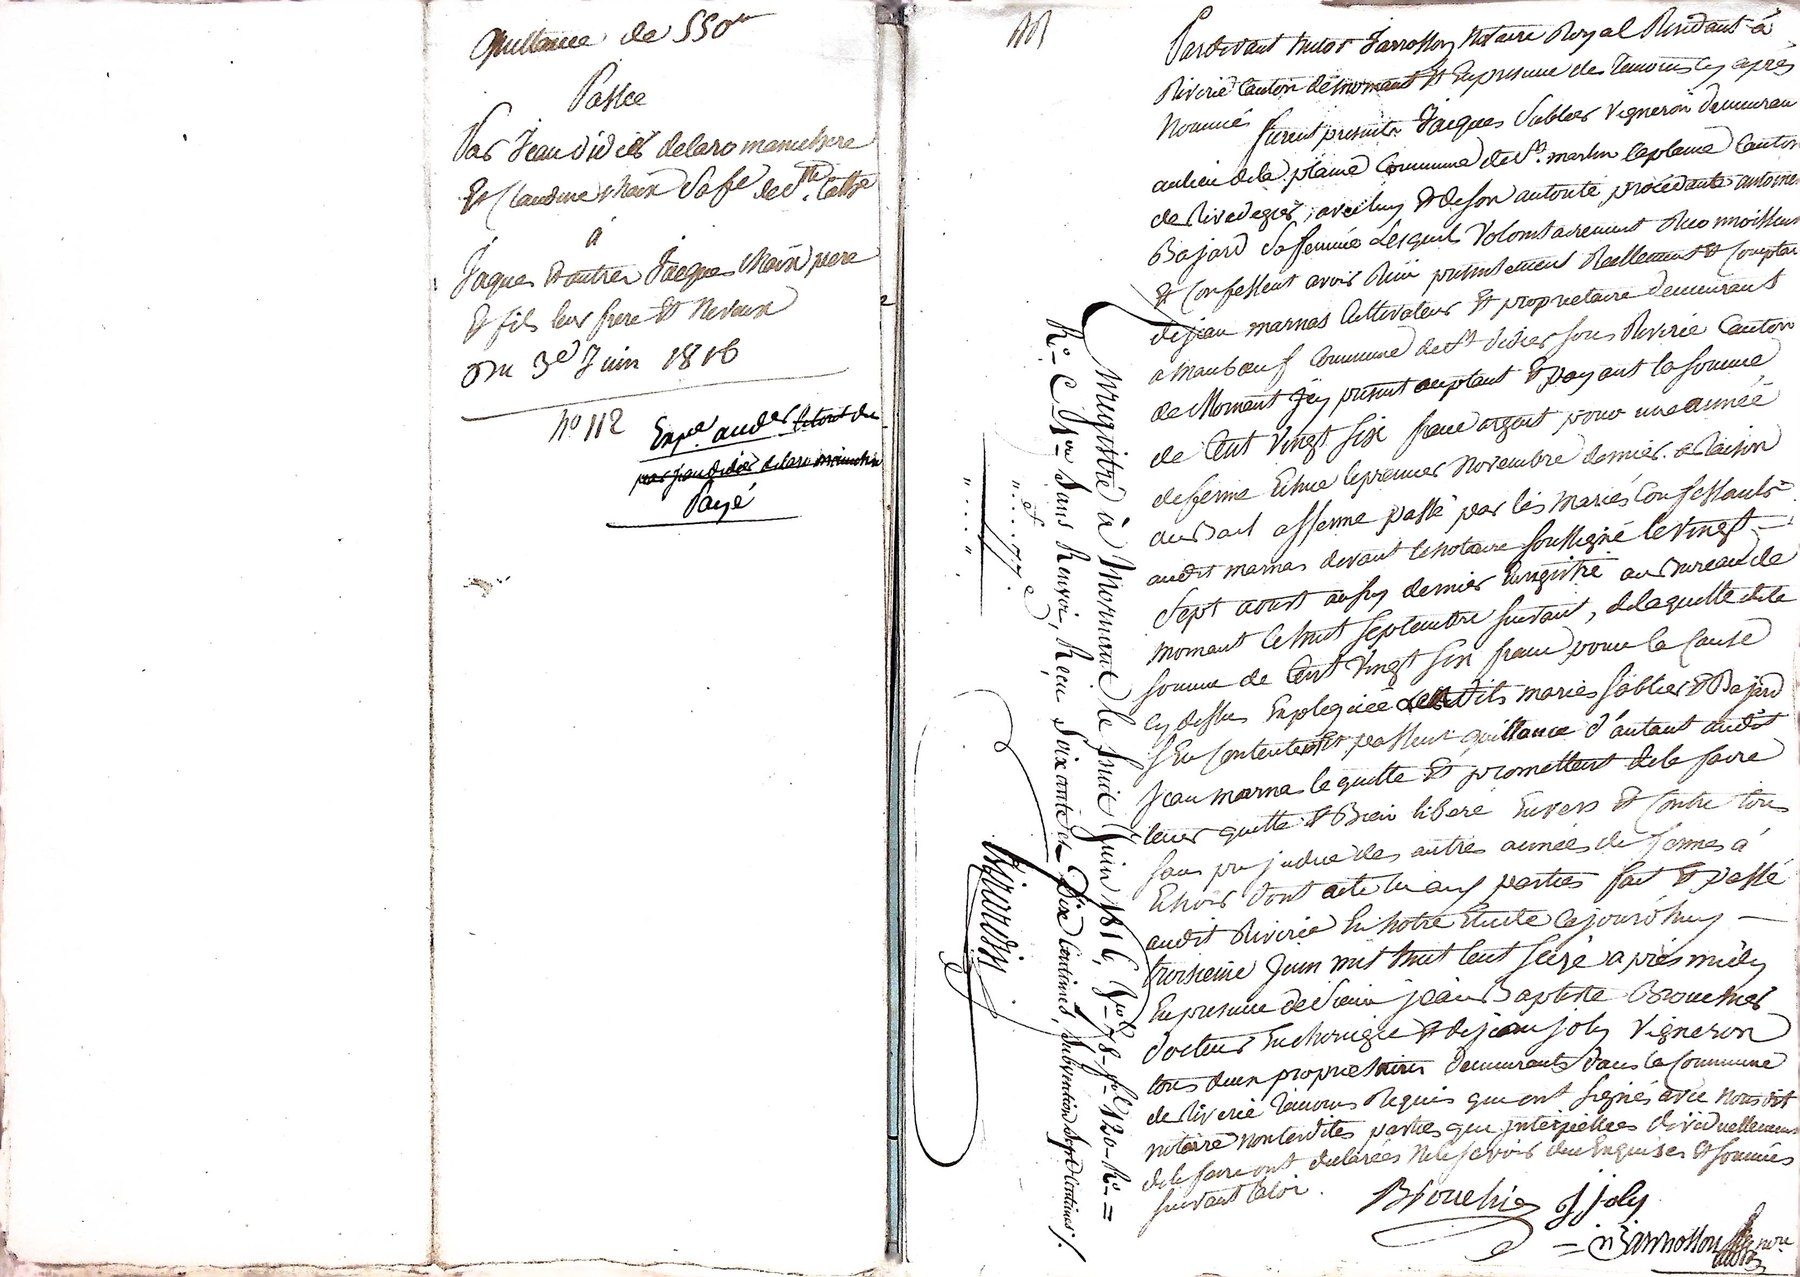 Quittance de 550 ₶
Passee
Par Jean didier delaro manichere
Et Claudine Chain Sa fe de Ste. Cathe
á
Jaques Et autre Jacques Chain pere
Et fils leur frere Et Neveux
Du 3e Juin 1816
No 112
Expe. aud.
par jean didier delaro
Payé
Pardevant Jarrosson Notaire Royal Residant á
Riverie Canton de mornant Et En presence des temoins Cy après
Nommés furent presents Jacques Sablier Vigneron demeuran
au lieu de la plaine Commune de St. martin la plaine Canton
de Rivedegier, avec luy Et de son autorité, procédante antoine
Bajard Sa femme Lesquels Volontairement Reconnoissen
Et Confessent avoir Reçu presentement Reellement Et Comptan
de jean marnas Cultivateur Et proprietaire demeurant
a maubœuf Commune de St. didier Sous Riverie Canton
de Mornant Icy present acceptant Et payant la Somme
de Cent Vingt Six francs argent pour une année
de ferme Echue le premier Novembre dernier a Raison
du Bail a fferme passé par les Mariés Confessants
audit marnas devant le Notaire Soussigné le Vingt
Sept aoust dernier Enregistré au Bureau de
mornant le huit Septembre Suivant, de laquelle dite
Somme de Cent Vingt Six francs pour la Cause
Cy dessus Expliquée lesdits mariés Sablier Et Bajard
S'En Contentent Et passent quittance d'autant audit
Jean marnas le quitte Et promettent de le faire
tenir quitte Et Bien liberé Envers Et Contre tous
Sans prejudice des autres années de fermes á
Echoir dont acte lu aux parties fait Et passé
audit Riverie En Notre Etude Cejourd'huy
troisieme Juin mil huit Cent Seize après midy
En presence de Sieur jean Baptiste Brouchier
Docteur En chirurgie Et de jean joly Vigneron
tous deux proprietaires demeurants dans la Commune
de Riverie temoins Requis qui ont Signés avec Nous dit
notaire non lesdites parties qui interpellees individuellement
de le faire ont declarées Ne le Scavoir de ce Enquises Et Sommées
Suivant la loi.
Brouchier J joly
Jarrosson
Enregistré à Mornant le huit Juin 1816, Vol. 78. fol. 120. Ro
Ro. C. 1re. Sans Renvoi, Reçu Soixante et Dix Centimes, Subvention Sept Centimes.
77 c